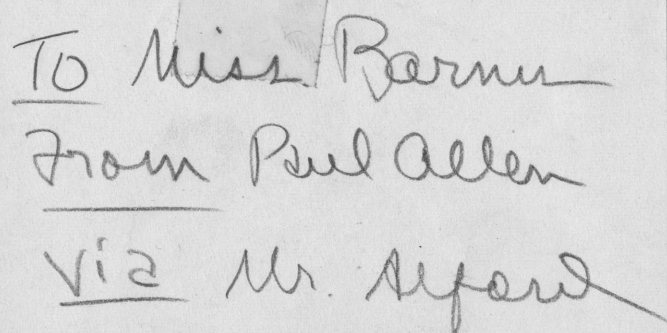 To Miss. Barnes
From Paul Allen
Via Mr. Alford